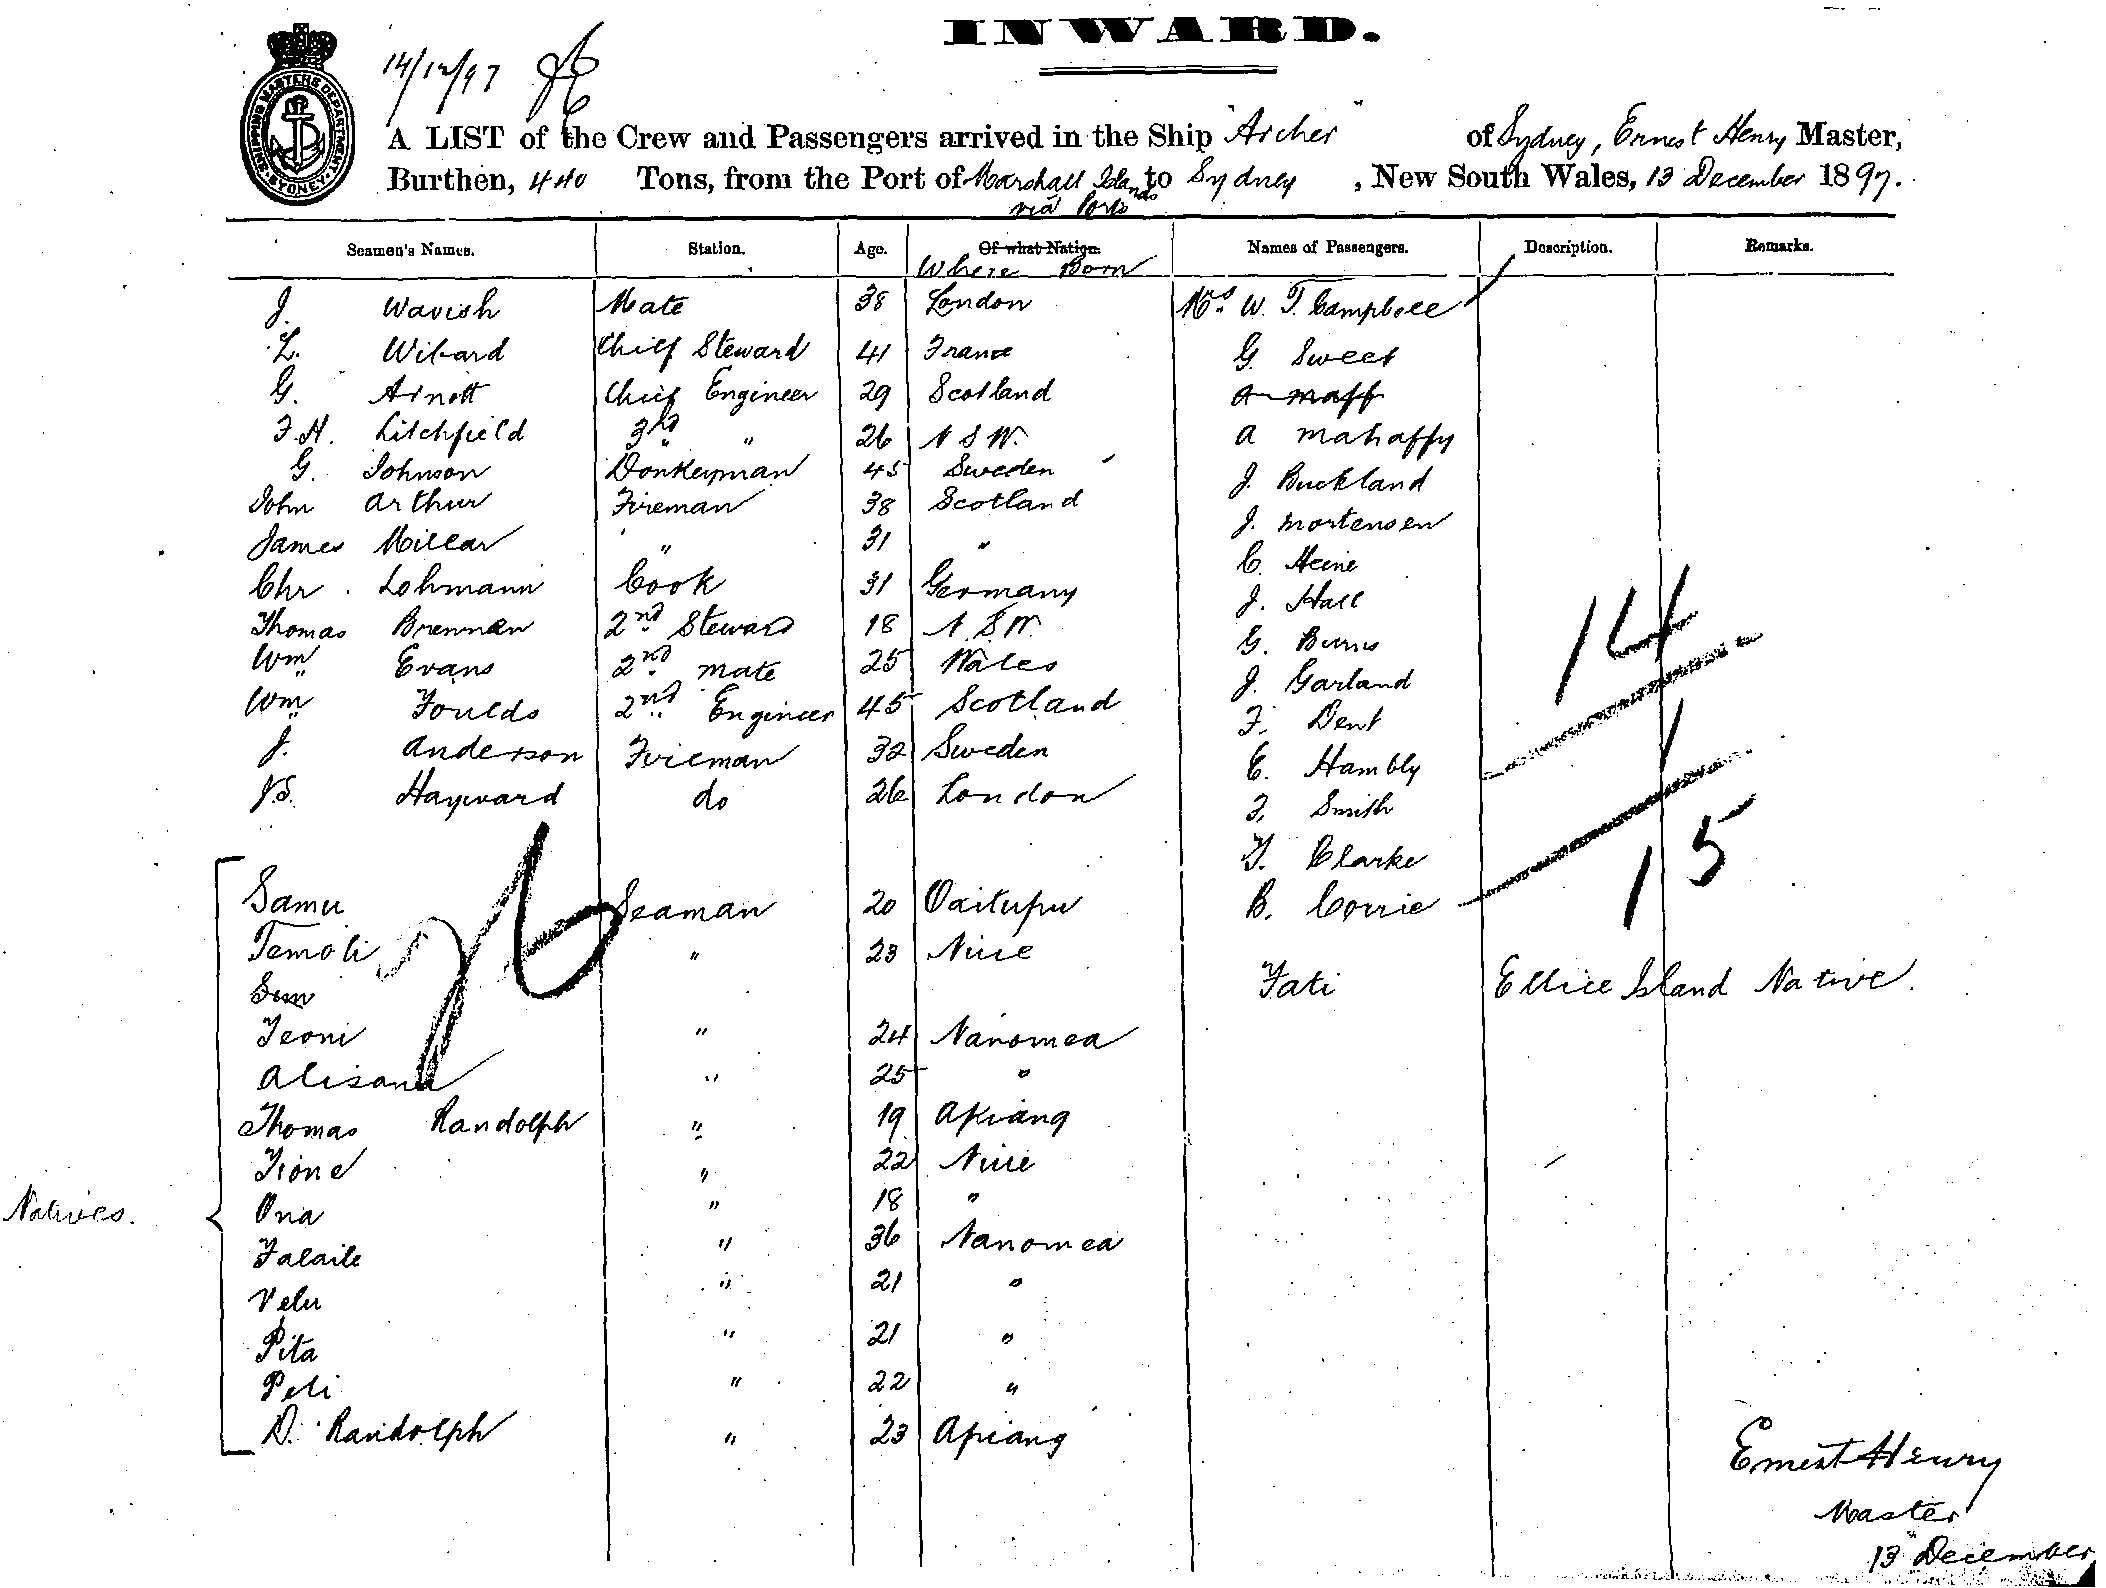 INWARD.
14/12/97
SHIPPING MASTERS DEPARTMENT SYDNEY
A LIST of the Crew and Passengers arrived in the Ship "Archer" of Sydney, Ernest Henry Master,
Burthen, 440 Tons, from the Port of Marshall Islands to Sydney, New South Wales, 13 December 1897.
via Ports
Seamen's Names. Station. Age. Of what Nation. Names of Passengers. Description. Remarks.
Where Born
J. Wavish Mate 38 London Mrs W. T. Campbell
L. Wibard Chief Steward 41 France G. Sweet
G. Arnott Chief Engineer 29 Scotland a maff
F. H. Litchfield 3rd " 26 N S W. A Mahaffy
G. Johnson Donkeyman 45 Sweden J. Buckland
John Arthur Fireman 38 Scotland J. Mortensen
James Millar " 31 " C. Heine
Chr. Lohmann Cook 31 Germany J. Hall
Thomas Brennan 2nd Steward 18 N. S. W. G. Burns
Wm Evans 2nd mate 25 Wales J. Garland
Wm Foulds 2nd Engineer 45 Scotland F. Dent
J. Anderson Fireman 32 Sweden E. Hambly
Hayward do 26 London F. Smith
T. Clarke
Samu Seaman 20 Oaitupu B. Corrie
14
1
15
26
Temoli " 23 Niue
Sim
Fati Ellice Island Native.
Jeoni " 24 Nanomea
Alisana " 25 "
Thomas Randolph " 19 Apiang
Sione " 22 Niue
Natives.
Ona " 18 "
Falaile " 36 Nanomea
Velu " 21 "
Pita " 21 "
Peli " 22 "
D. Randolph " 23 Apiang
Ernest Henry
Master
13 December